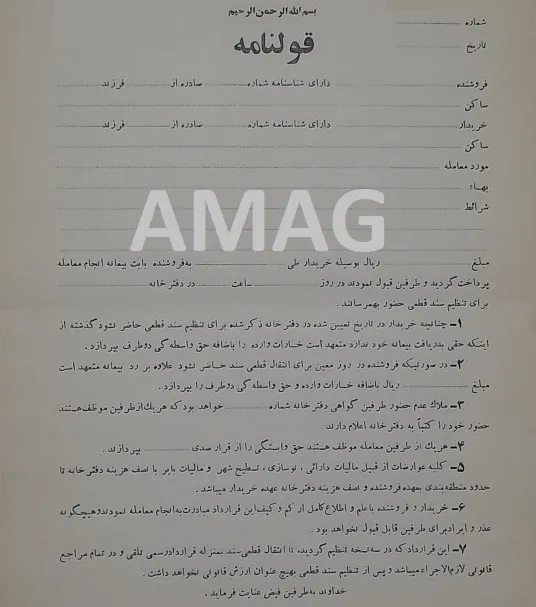 بسم الله الرحمن الرحیم
شماره
قولنامه
تاریخ
فروشنده دارای شناسنامه شماره صادره از فرزند
ساکن
خریدار دارای شناسنامه شماره صادره از فرزند
ساکن
مورد معامله
بهاء
شرائط
AMAG
مبلغ ریال بوسیله خریدار طی به فروشنده بابت بیعانه انجام معامله
پرداخت گردید و طرفین قبول نمودند در روز ساعت در دفتر خانه
برای تنظیم سند قطعی حضور بهم رسانند .
۱- چنانچه خریدار در تاریخ تعیین شده در دفتر خانه ذکر شده برای تنظیم سند قطعی حاضر نشود گذشته از
اینکه حقی بدریافت بیعانه خود ندارد متعهد است خسارات وارده را باضافه حق واسطه گی دوطرف بپردازد .
۲- در صورتیکه فروشنده در روز معین برای انتقال قطعی سند حاضر نشود علاوه بر رد بیعانه متعهد است
مبلغ ریال باضافه خسارات وارده و حق واسطه گی دوطرف را بپردازد .
۳- ملاک عدم حضور طرفین گواهی دفتر خانه شماره خواهد بود که هر یک از طرفین موظف هستند
حضور خود را کتباً به دفتر خانه اعلام دارند .
۴- هریک از طرفین معامله موظف هستند حق وابستگی را از قرار صدی بپردازند .
۵- کلیه عوارضات از قبیل مالیات دارائی ، نوسازی ، تسطیح شهر و مالیات بایر با نصف هزینه دفتر خانه تا
حدود منطقه بندی بعهده فروشنده و نصف هزینه دفتر خانه عهده خریدار میباشد .
۶- خریدار و فروشنده با علم و اطلاع کامل از کم و کیف این قرارداد مبادرت به انجام معامله نمودند و هیچگونه
عذر و ایراد برای طرفین قابل قبول نخواهد بود .
۷- این قرارداد که در سه نسخه تنظیم گردید، تا انتقال قطعی سند بمنزله قرارداد رسمی تلقی و در تمام مراجع
قانونی لازم الاجراء میباشد و پس از تنظیم سند قطعی بهیچ عنوان ارزش قانونی نخواهد داشت .
خداوند به طرفین فیض عنایت فرماید .